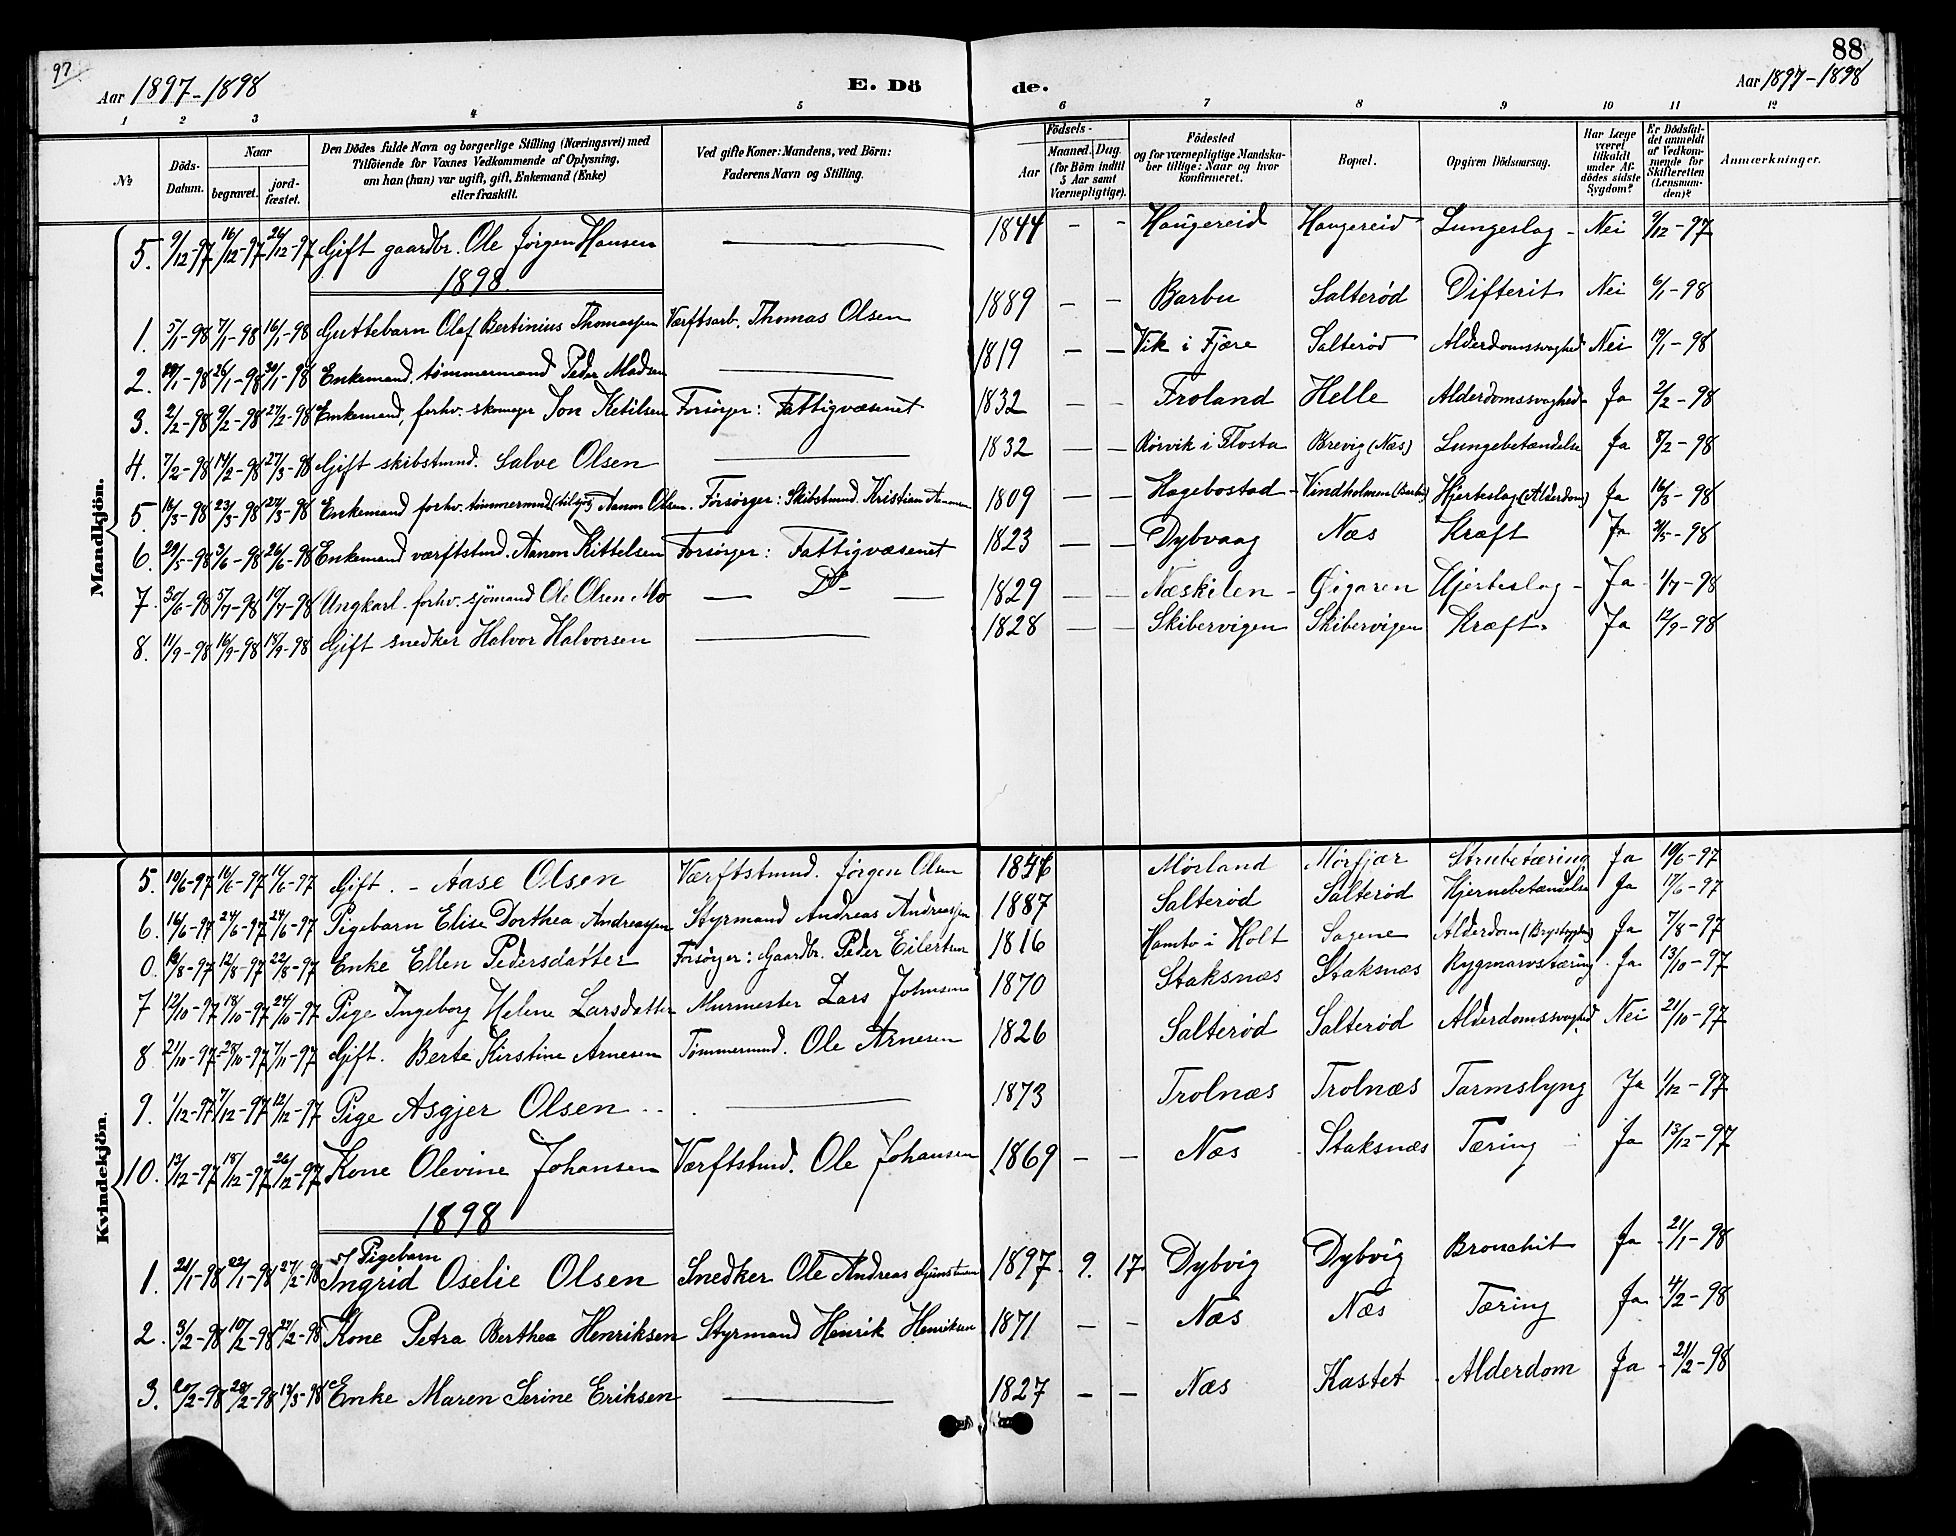 97.
88
Aar 1897-1898
E. Dö
de.
Aar 1897-1898
1 2 3 4 5 6 7 8 9 10 11 12
№ Döds-Datum. Naar begravet. jord-fæstet. Den Dödes fulde Navn og borgerlige Stilling (Næringsvei) med Tilföiende for Voxnes Vedkommende af Oplysning, om han (hun) var ugift, gift, Enkemand (Enke) eller fraskilt. Ved gifte Koner: Mandens, ved Börn: Faderens Navn og Stilling. Födsels- Aar Maaned. Dag. (for Börn indtil 5 Aar samt Værnepligtige). Födested og for værnepligtige Mandska-ber tillige: Naar og hvor konfirmeret. Bopæl. Opgiven Dödsaarsag. Har Læge været tilkaldt under Af-dödes sidste Sygdom? Er Dödsfal-det anmeldt af Vedkom-mende for Skifteretten (Lensman-den)? Anmærkninger.
Mandkjön.
5. 9/12-97 16/12-97 26/12-97 Gift gaardbr. Ole Jørgen Hansen — 1844 - - Haugereid Haugereid Lungeslag - Nei 9/12-97
1898.
1. 5/1-98 7/1-98 16/1-98 Guttebarn Olaf Bertinius Thomassen Værftsarb. Thomas Olsen 1889 - - Barbu Salterød Difterit Nei 6/1-98
2. 26/1-98 30/1-98 Enkemand, tømmermand Peder Madsen — 1819 - - Vik i Fjære Salterød Alderdomssvaghed Nei 19/1-98
3. 2/2-98 9/2-98 27/2-98 Enkemand, forhv. skomager Jon Ketilsen Forsørger: Fattigvæsenet 1832 - - Froland Helle Alderdomssvaghed- Ja 2/2-98
4. 7/2-98 14/2-98 27/3-98 Gift skibstmnd. Salve Olsen — 1832 - - Rørvik i Flosta Brevig (Næs) Lungebetændelse Ja 8/2-98
5. 16/3-98 23/3-98 27/3-98 Enkemand forhv. tømmermnd Aanon Olsen. Forsørger: Skibstmnd. Kristian 1809 - - Hagebostad - Vindholmen (Barbu) Hjerteslag (Alderdom) Ja 16/3-98
6. 29/5-98 3/6-98 26/6-98 Enkemand værftstmd. Aanon Kittelsen Forsørger: Fattigvæsenet 1823 - - Dybvaag Næs Kræft Ja 31/5-98
7. 30/6-98 5/7-98 10/7-98 Ungkarl. forhv. sjømand Ole Olsen Mo — Do — 1829 - - Næskilen - Øigaren Hjerteslag - Ja 1/7-98
8. 11/9-98 16/9-98 18/9-98 Gift snedker Halvor Halvorsen — 1828 - - Skibervigen Skibervigen Kræft. Ja 12/9-98
Kvindekjön.
5. 10/6-97 16/6-97 Gift. - Aase Olsen Værftstmnd. Jørgen Olsen Morland Mørfjær Strubetæring Ja 10/6-97
6. 16/6-97 24/6-97 24/6-97 Pigebarn Elise Dorthea Andreassen Styrmand Andreas Andreassen 1887 Salterød Salterød Hjernebetændelse Ja 17/6-97
0. 12/8-97 22/8-97 Enke Ellen Pedersdatter Forsørger: Gaardbr. Peder Eilertsen 1816 i Holt Sagene Alderdom Ja 7/8-97
7 12/10-97 18/10-97 24/10-97 Pige Ingeborg Helene Larsdatter Murmester Lars Johnsen 1870 Staksnæs Staksnæs Rygmarvstæring. Ja 13/10-97
8 21/10-97 28/10-97 7/11-97 Gift. Berte Kirstine Arnesen Tømmermnd. Ole Arnesen 1826 Salterød Salterød Alderdomssvaghed Nei 21/10-97
9. 1/12-97 7/12-97 12/12-97 Pige Asgjer Olsen — 1873 Trolnæs Trolnæs Tarmslyng Ja 1/12-97
10. 13/12-97 18/12-97 26/12-97 Kone Olevine Johansen Værftstmd. Ole Johansen 1869 - - Næs Staksnæs Tæring Ja 13/12-97
1898
Pigebarn
1. 21/1-98 22/1-98 27/2-98 Ingrid Oselie Olsen Snedker Ole Andreas 1897. 9. 17. Dybvig Dybvig Bronchit Ja 21/1-98
2. 3/2-98 10/2-98 27/2-98 Kone Petra Berthea Henriksen Styrmand Henrik Henriksen 1871 - - Næs Næs Tæring Ja 4/2-98
3. 20/2-98 28/2-98 13/3-98 Enke Maren Serine Eriksen — 1827 - - Næs Kastet Alderdom Ja - 21/2-98